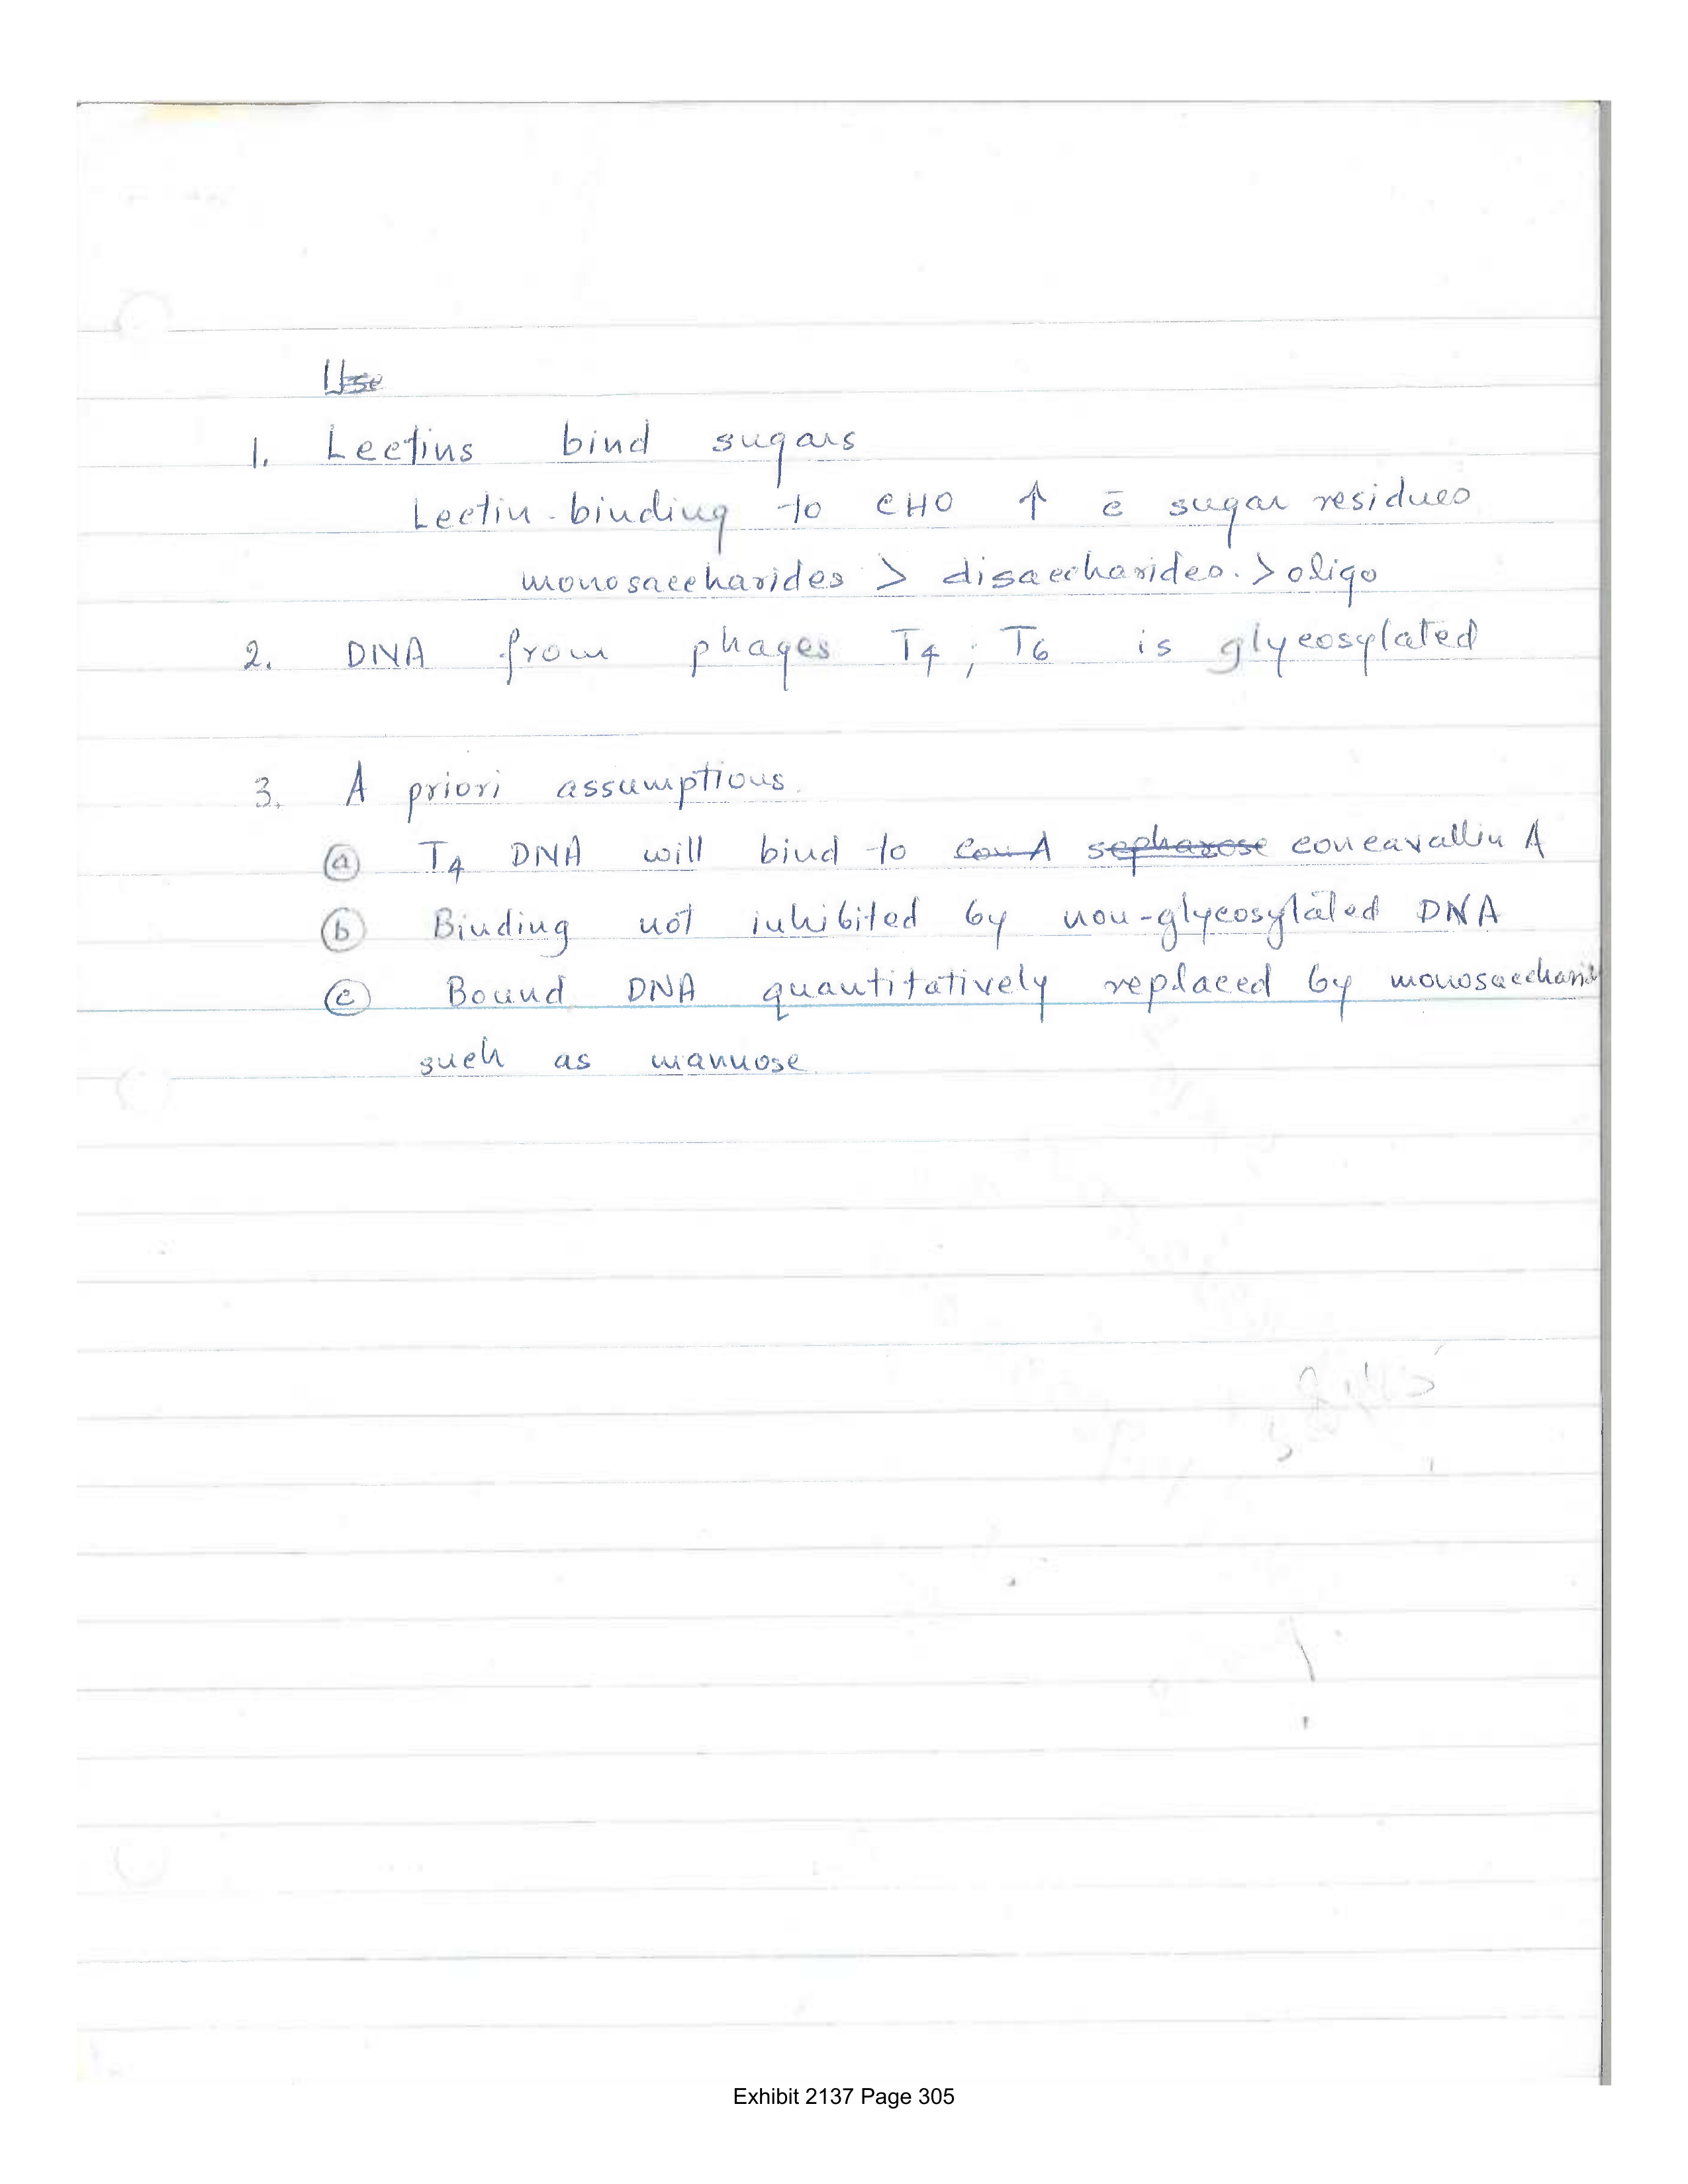 Use
1. Lectins bind sugars
Lectin-binding to CHO ↑ c̄ sugar residues
monosaccharides > disaccharides. > oligo
2. DNA from phages T4, T6 is glycosylated
3. A priori assumptions.
(a) T4 DNA will bind to Con A sepharose concavallin A
(b) Binding not inhibited by non-glycosylated DNA
(c) Bound DNA quantitatively replaced by monosacchari
such as mannose.
Exhibit 2137 Page 305